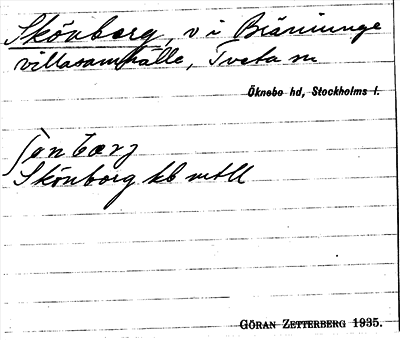 Skönberg, v i Bränninge
villasamhälle, Tveta sn
Öknebo hd, Stockholms l.
Skönborg kb mtll
GÖRAN ZETTERBERG 1935.